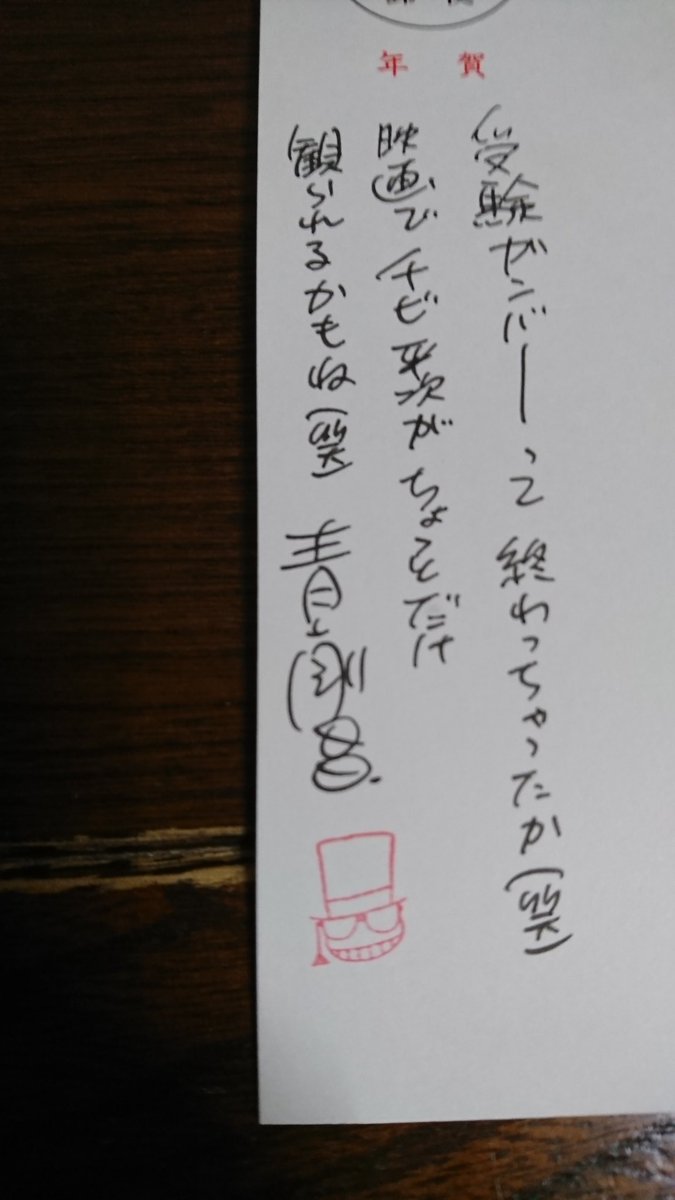 年賀
受験ガンバーって終わっちゃったか(笑)
映画でチビ平次がちょっとだけ
観られるかもね(笑) 青山剛昌